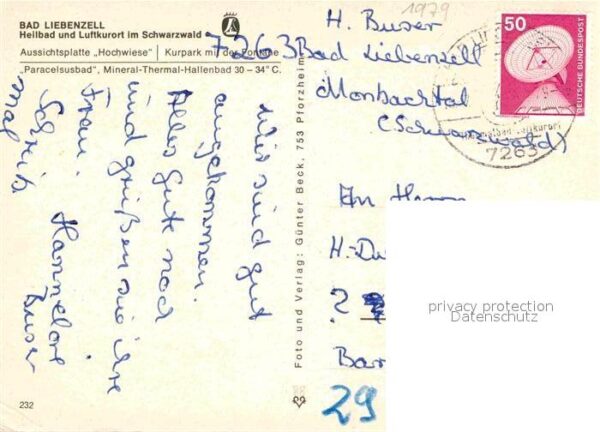 BAD LIEBENZELL
Heilbad und Luftkurort im Schwarzwald
Aussichtsplatte „Hochwiese“ | Kurpark mit der Fontäne
„Paracelsusbad“, Mineral-Thermal-Hallenbad 30 – 34° C.
1979
H. Buser
7263 Bad Liebenzell
Monbachtal
(Schwarzwald)
50
DEUTSCHE BUNDESPOST
Luftkurort
7263
An Herrn
H-Du
?
Bar
29
privacy protection
Datenschutz
Wir sind gut
angekommen.
Alles gute und
und grüßen sie ihre
Frau.
Hannelore
Buser
Foto und Verlag: Günter Beck, 753 Pforzheim
232